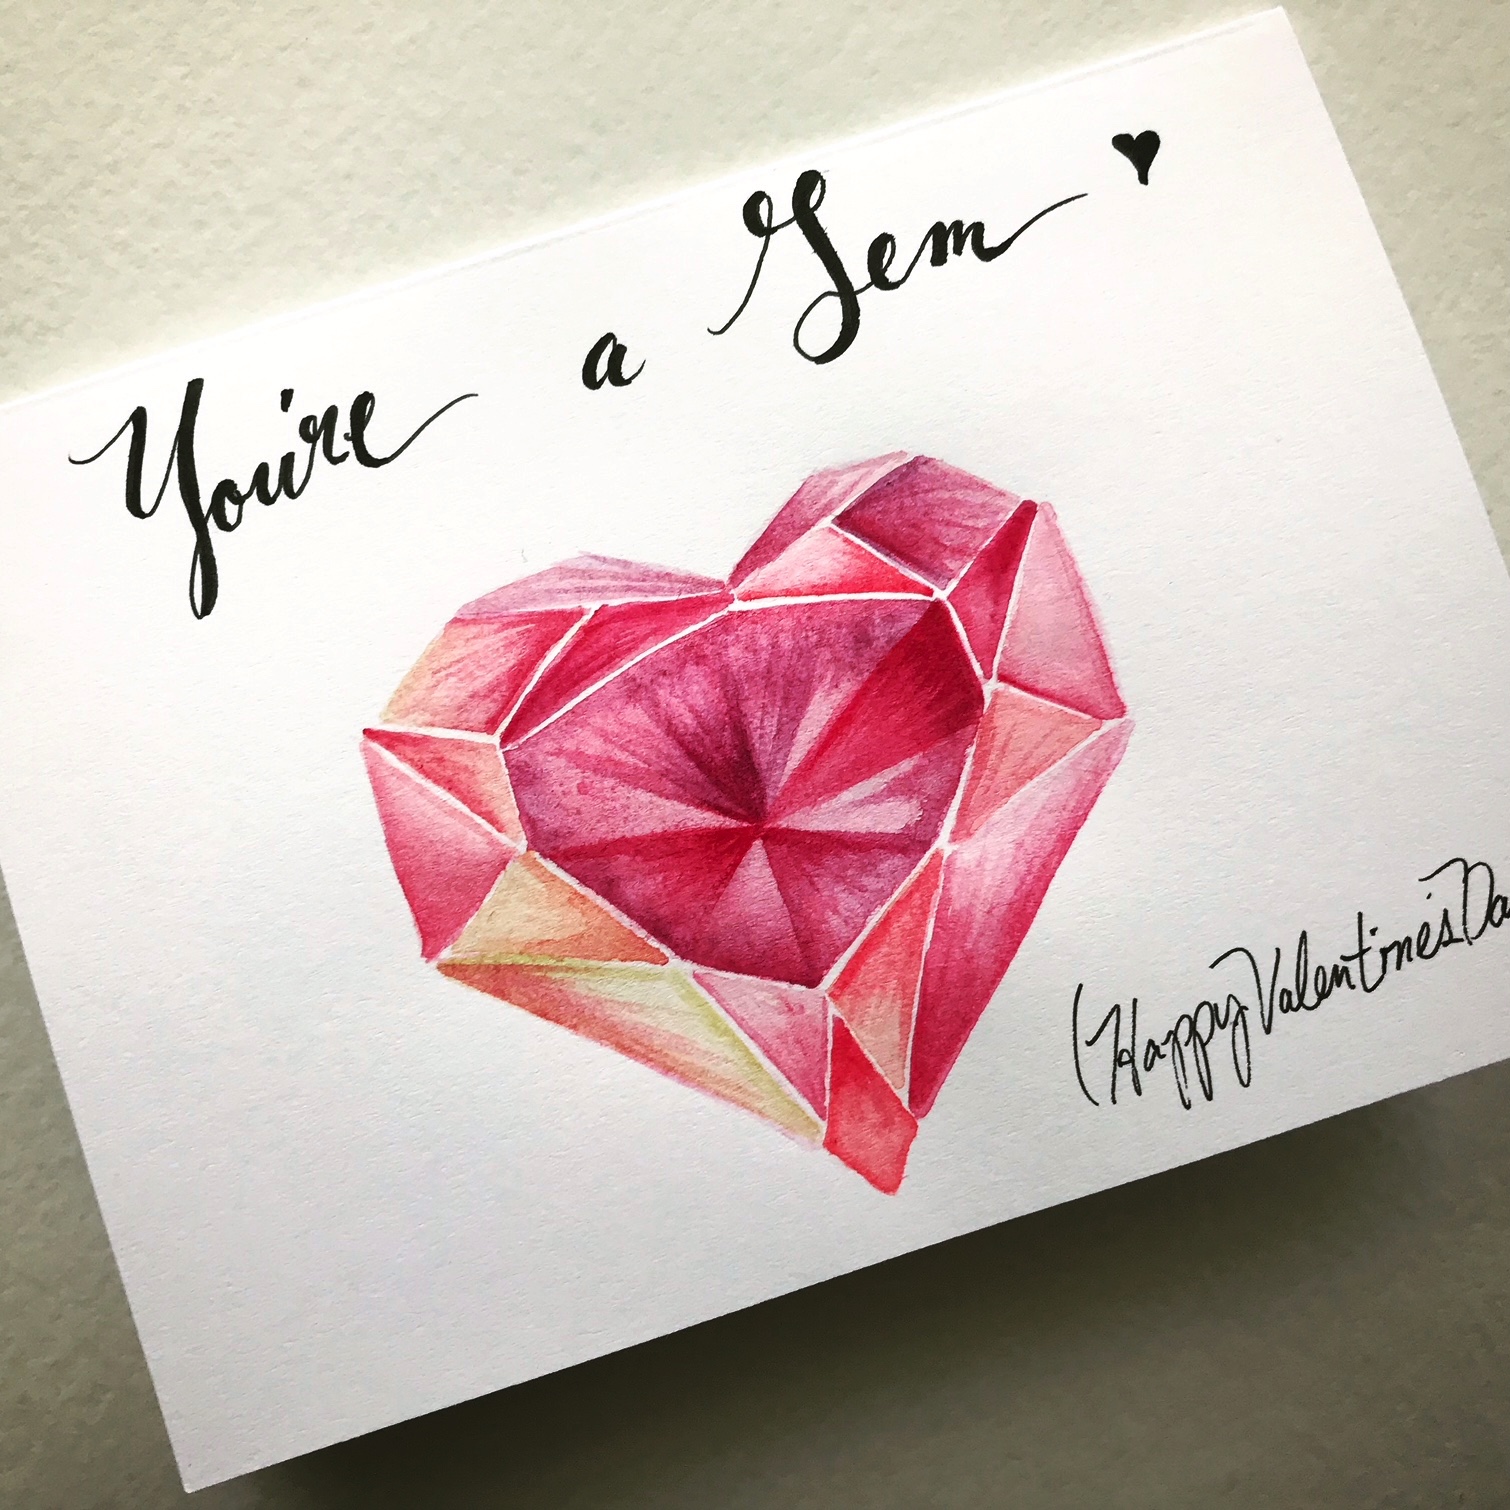 You're a Gem ♥
(Happy Valentine's Da